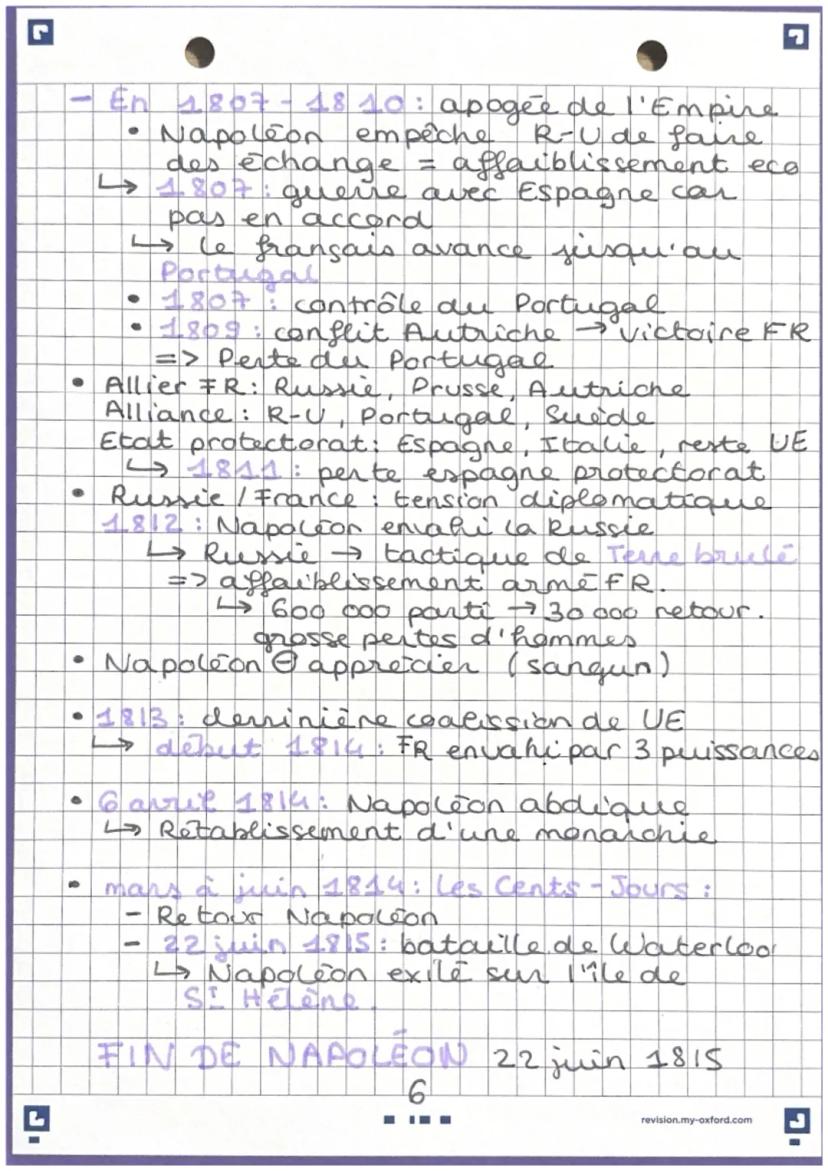 - En 1807-1810 : apogée de l'Empire
• Napoléon empêche R-U de faire
des échange = affaiblissement eco
↳ 1807 : guerre avec Espagne car
pas en accord
↳ le français avance jusqu'au
Portugal
• 1807 : contrôle du Portugal
• 1809 : conflit Autriche → victoire FR
=> Perte du Portugal
• Allier FR : Russie, Prusse, Autriche
Alliance : R-U, Portugal, Suède
Etat protectorat : Espagne, Italie, reste UE
↳ 1811 : perte espagne protectorat
• Russie / France : tension diplomatique
1812 : Napoléon envahi la Russie
↳ Russie → tactique de Terre brulé
=> affaiblissement armé FR.
↳ 600 000 parti → 30 000 retour.
grosse pertes d'hommes
• Napoléon ⊖ apprécier (sangun)
• 1813 : derninière coalission de UE
↳ début 1814 : FR envahi par 3 puissances
• 6 avril 1814 : Napoléon abdique
↳ Rétablissement d'une monarchie
• mars à juin 1814 : Les Cents-Jours :
- Retour Napoléon
- 22 juin 1815 : bataille de Waterloo
↳ Napoléon exilé sur l'île de
St Hélène.
FIN DE NAPOLÉON 22 juin 1815
6
revision.my-oxford.com